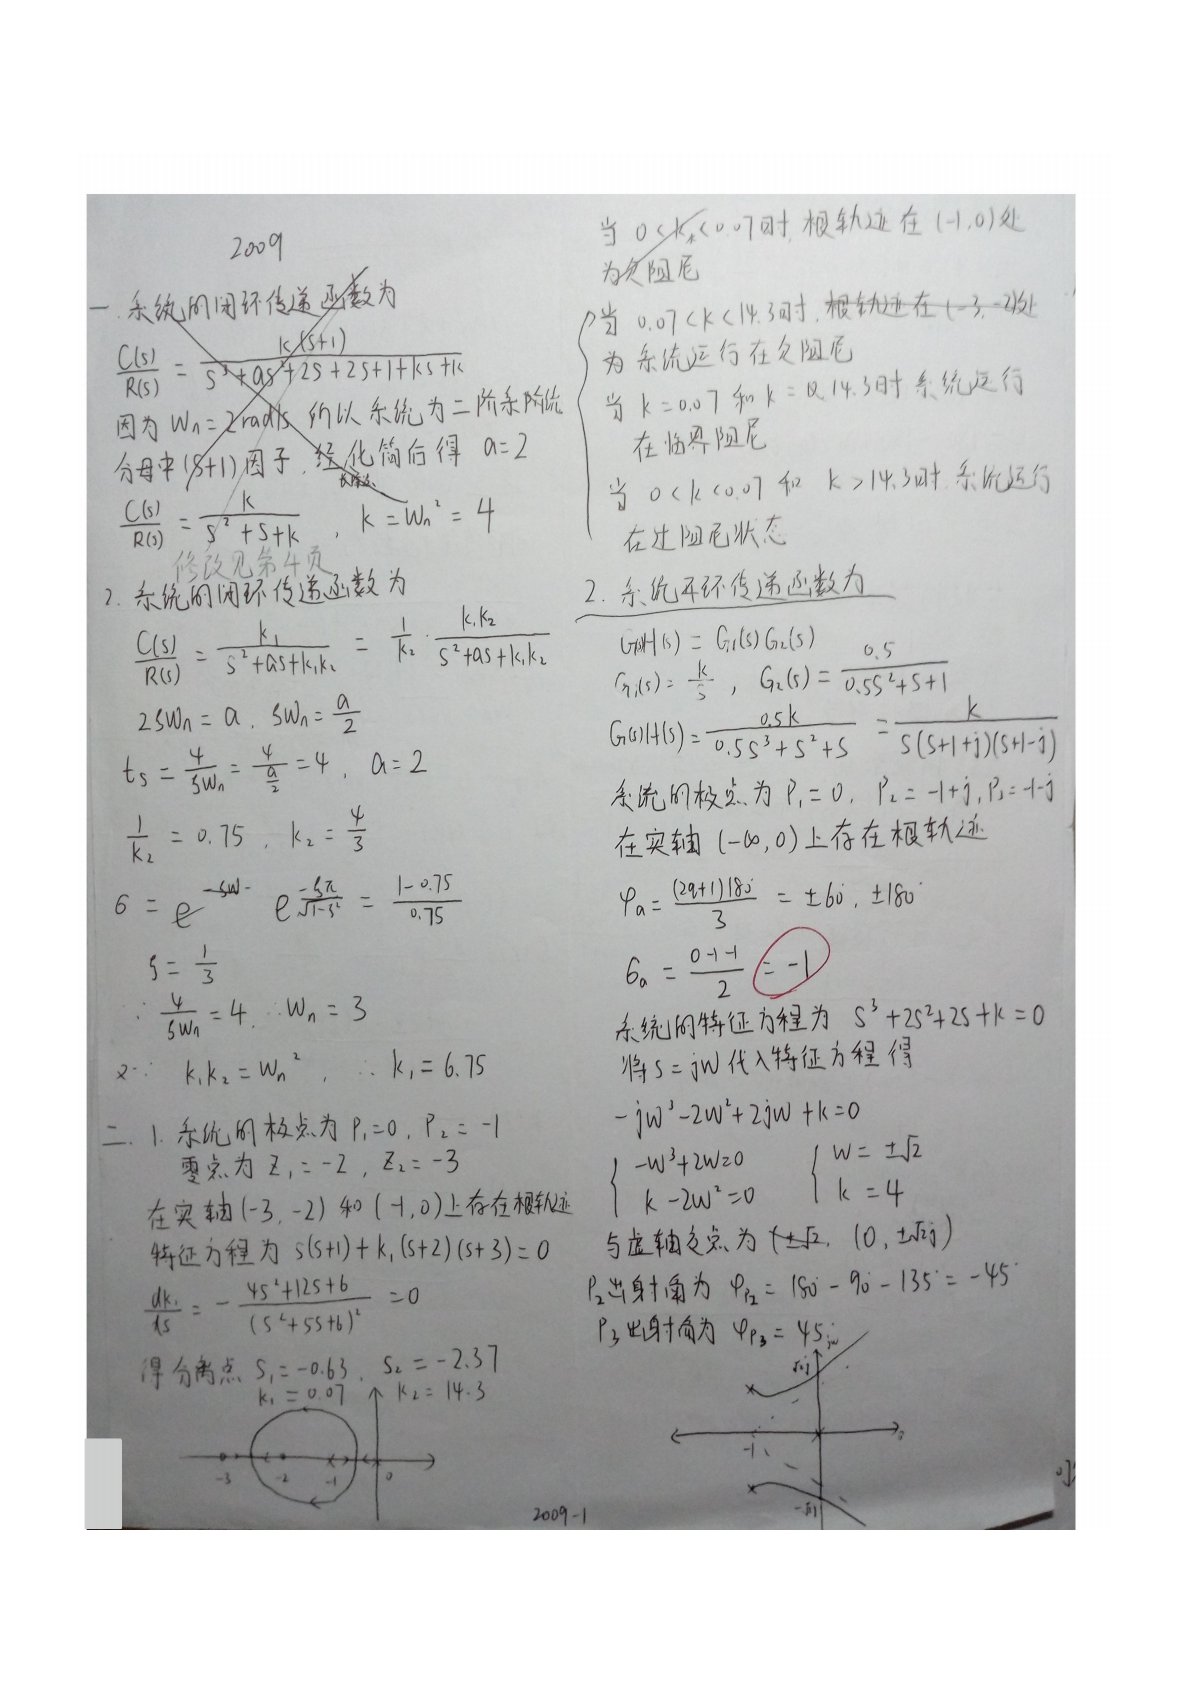 2009
一.系统的闭环传递函数为
C(s)/R(s) = k(s+1)/(s³+as²+2s+2s+1+ks+k)
因为 Wn=2rad/s 所以系统为二阶系阶统
分母中(s+1)因子,经化简后得 a=2
C(s)/R(s) = k/(s²+s+k) , k=Wn²=4
修改见第4页
2. 系统的闭环传递函数为
C(s)/R(s) = k₁/(s²+as+k₁k₂) = 1/k₂ · k₁k₂/(s²+as+k₁k₂)
2ζWn = a. ζWn = a/2
ts = 4/ζWn = 4/(a/2) = 4, a=2
1/k₂ = 0.75, k₂ = 4/3
σ = e e^(-ζπ/√1-ζ²) = (1-0.75)/0.75
ζ = 1/3
∵ 4/ζWn = 4, ∴ Wn = 3
又∵ k₁k₂ = Wn², ∴ k₁=6.75
二. 1. 系统的极点为 P₁=0, P₂=-1
零点为 Z₁=-2, Z₂=-3
在实轴(-3,-2)和(-1,0)上存在根轨迹
特征方程为 s(s+1)+k₁(s+2)(s+3)=0
dk₁/ds = -(4s²+12s+6)/(s²+5s+6)² =0
得分离点 S₁=-0.63, S₂=-2.37
k₁=0.07 k₂=14.3
-3 -2 -1 0
当 0<k<0.07时,根轨迹在(-1,0)处
为欠阻尼
当 0.07<k<14.3时,根轨迹在(-3,-2)处
为系统运行在欠阻尼
当 k=0.07 和 k=14.3时系统运行
在临界阻尼
当 0<k<0.07 和 k>14.3时,系统运行
在过阻尼状态
2. 系统开环传递函数为
G(s)H(s) = G₁(s)G₂(s)
G₁(s) = k/s, G₂(s) = 0.5/(0.5s²+s+1)
G(s)H(s) = 0.5k/(0.5s³+s²+s) = k/(s(s+1+j)(s+1-j))
系统的极点为 P₁=0, P₂=-1+j, P₃=-1-j
在实轴(-∞,0)上存在根轨迹
φa = (2q+1)180°/3 = ±60°, ±180°
σa = (0-1-1)/2 = -1
系统的特征方程为 s³+2s²+2s+k=0
将s=jw代入特征方程得
-jw³-2w²+2jw+k=0
{ -w³+2w=0 { w=±√2
k-2w²=0 k=4
与虚轴交点为(±√2, (0,±√2j)
P₂出射角为 φP₂=180°-90°-135°=-45°
P₃出射角为 φP₃=45°
jw
√2j
-1
-√2j
2009-1